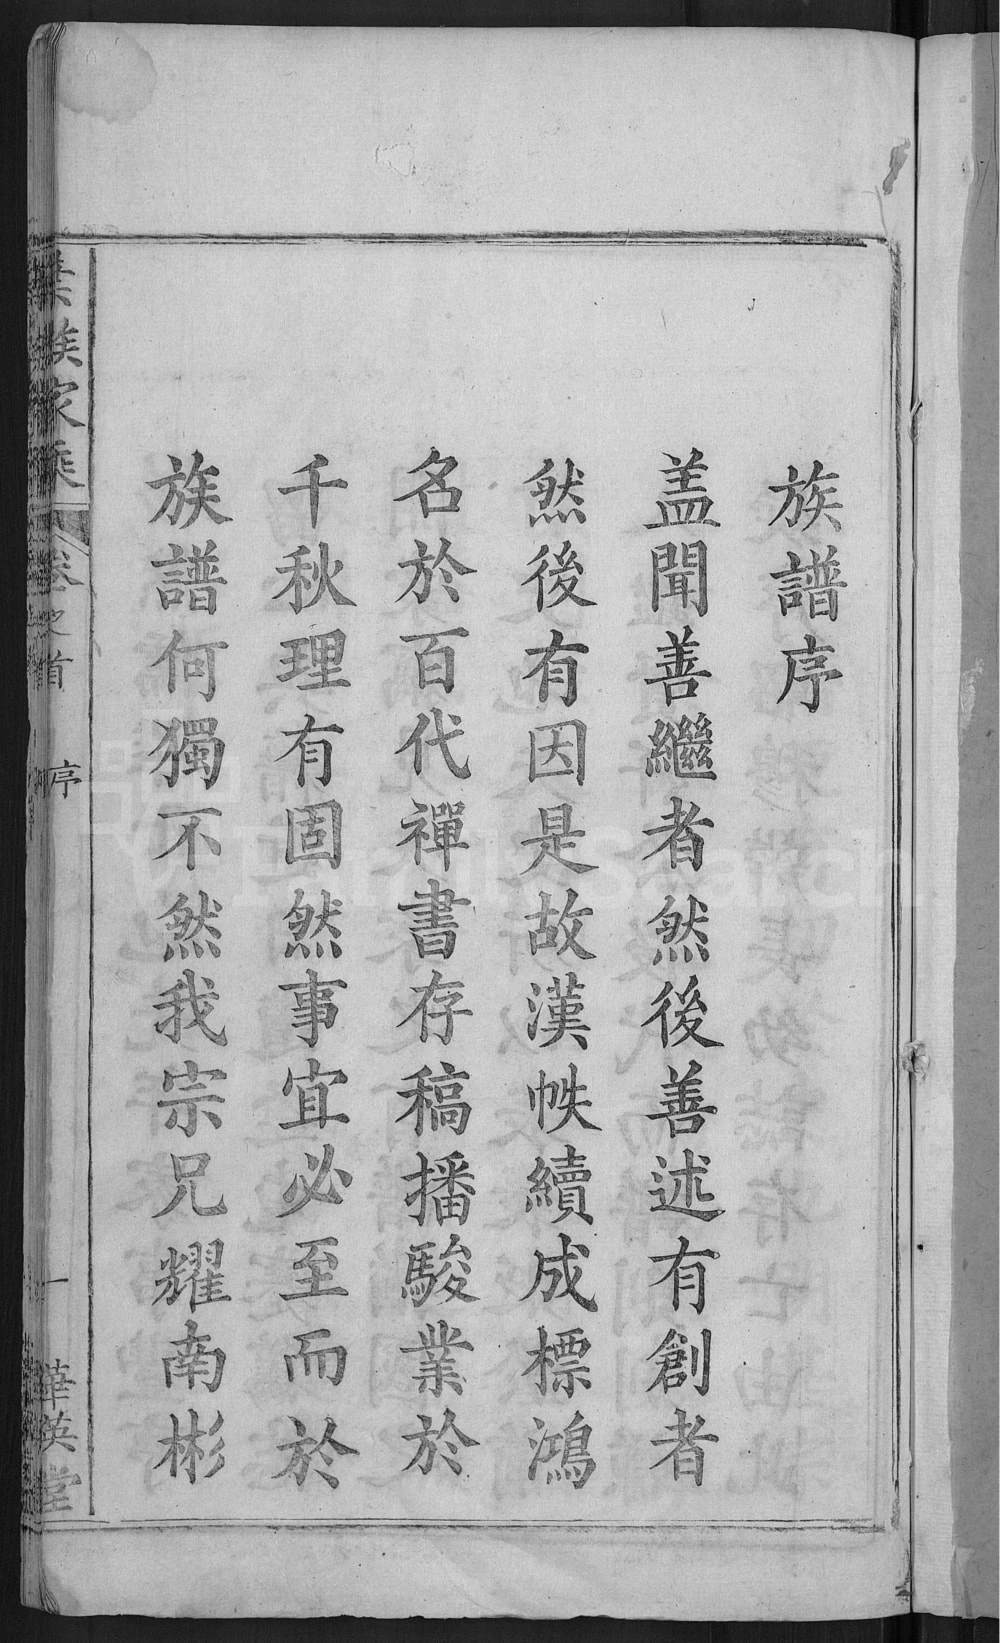 族譜序
盖聞善繼者然後善述有創者
然後有因是故漢帙續成標鴻
名於百代禪書存稿播駿業於
千秋理有固然事宜必至而於
族譜何獨不然我宗兄耀南彬
族家乘
卷之首
序
一
華英堂